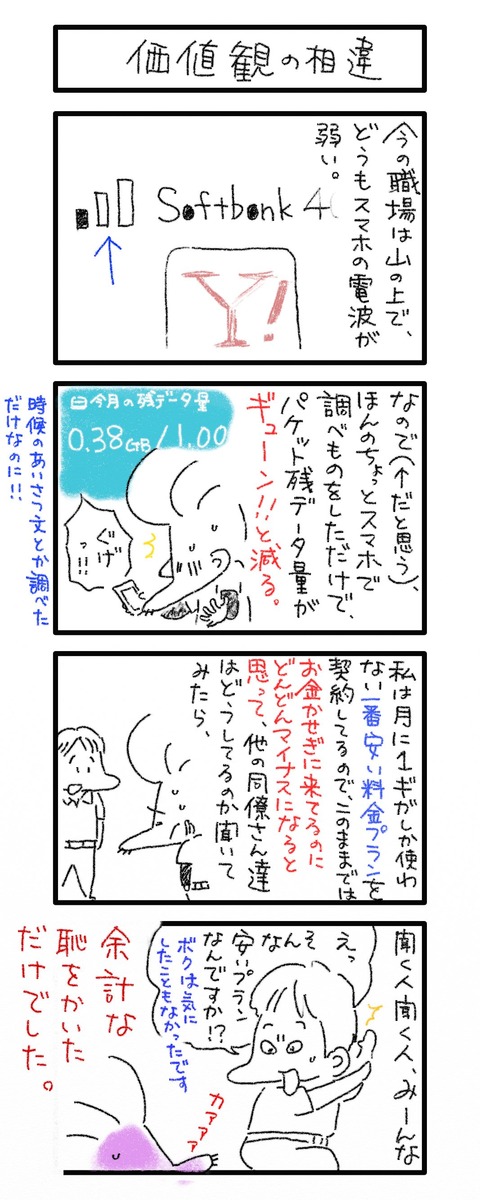 価値観の相違
今の職場は山の上で、
どうもスマホの電波が
弱い。
Softbank 4
Y!
なので(↑だと思う)、
ほんのちょっとスマホで
調べものをしただけで、
パケット残データ量が
ギューン!!と減る。
日今月の残データ量
0.38GB/1.00
ぐげ
っ!!
時候のあいさつ文とか調べた
だけなのに!!
私は月に1ギガしか使わ
ない一番安い料金プランを
契約してるので、このままでは
お金かせぎに来てるのに
どんどんマイナスになると
思って、他の同僚さん達
はどうしてるのか聞いて
みたら、
聞く人聞く人、みーんな
えっ
そ
なんな
安いプラン
なんですか!?
ボクは気に
したこともなかったです
カァァァ
余計な
恥をかいた
だけでした。